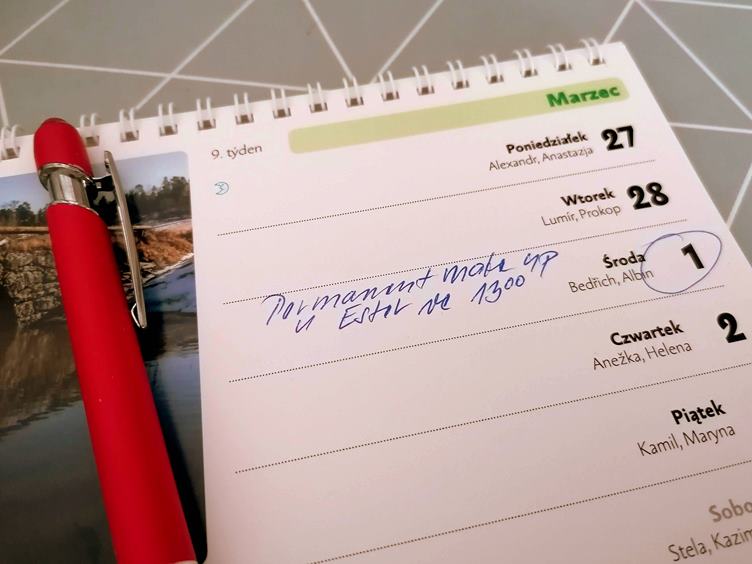 Marzec
9. týden
Poniedziałek 27
Alexandr, Anastazja
Wtorek 28
Lumír, Prokop
Środa 1
Bedřich, Albin
Permanent make up
u Ester ve 1300
Czwartek 2
Anežka, Helena
Piątek
Kamil, Maryna
Sobo
Stela, Kazim